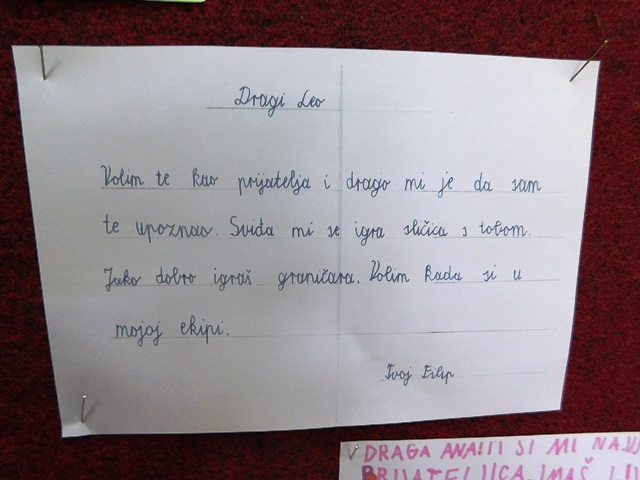 Dragi Leo
Volim te kao prijatelja i drago mi je da sam
te upoznao. Sviđa mi se igra sličica s tobom.
Jako dobro igraš graničara. Volim kada si u
mojoj ekipi.
Tvoj Filip
DRAGA ANAITI SI MI NAJ
PRIJATELJICA. IMAŠ